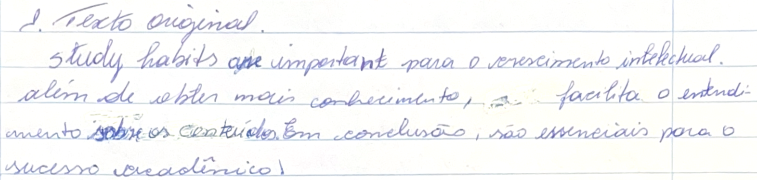 1. Texto original.
study habits are important para o crescimento intelectual.
além de obter mais conhecimento, facilita o entendi-
mento sobre os conteúdos. Em conclusão, são essenciais para o
sucesso acadêmico!